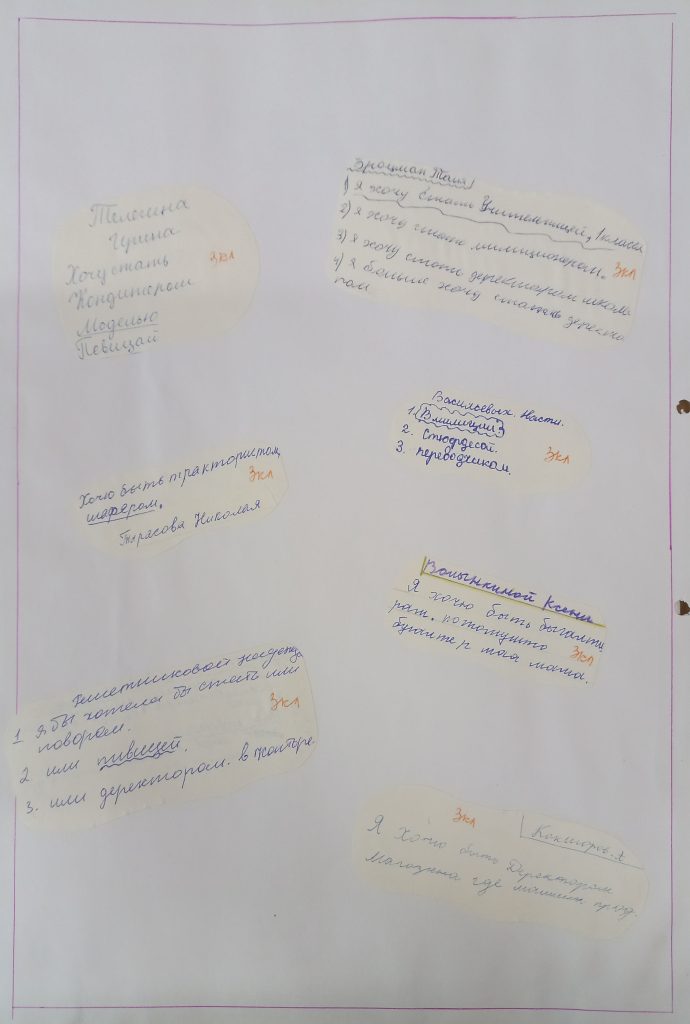 Телегина
Ирина
Хочу стать
Кондитором
Моделью
Певицай
3кл
Эроцман Таня
1) Я хочу стать Учительницей, 1 класса
2) Я хочу стать милиционером.
3) Я хочу стать деректаром школы
4) Я больше хочу стать
3кл
Васильевых. Насти.
1. В милиции
2. Стюрдесой.
3. переводчиком.
3кл
Хочю быть трактористом,
шафёром.
Тарасова Николая
3кл
Волынкиной Ксени
Я хочю быть быгалте
рам. потомушто
бугалтер моа мама.
3кл
надежда
1 Я бы хотела бы стать или
поваром.
2 или пивицей.
3. или деректором. в конторе
3кл
3кл
Кокшаров. А
Я Хочю быть Деректором
Магозина где машыны прод.